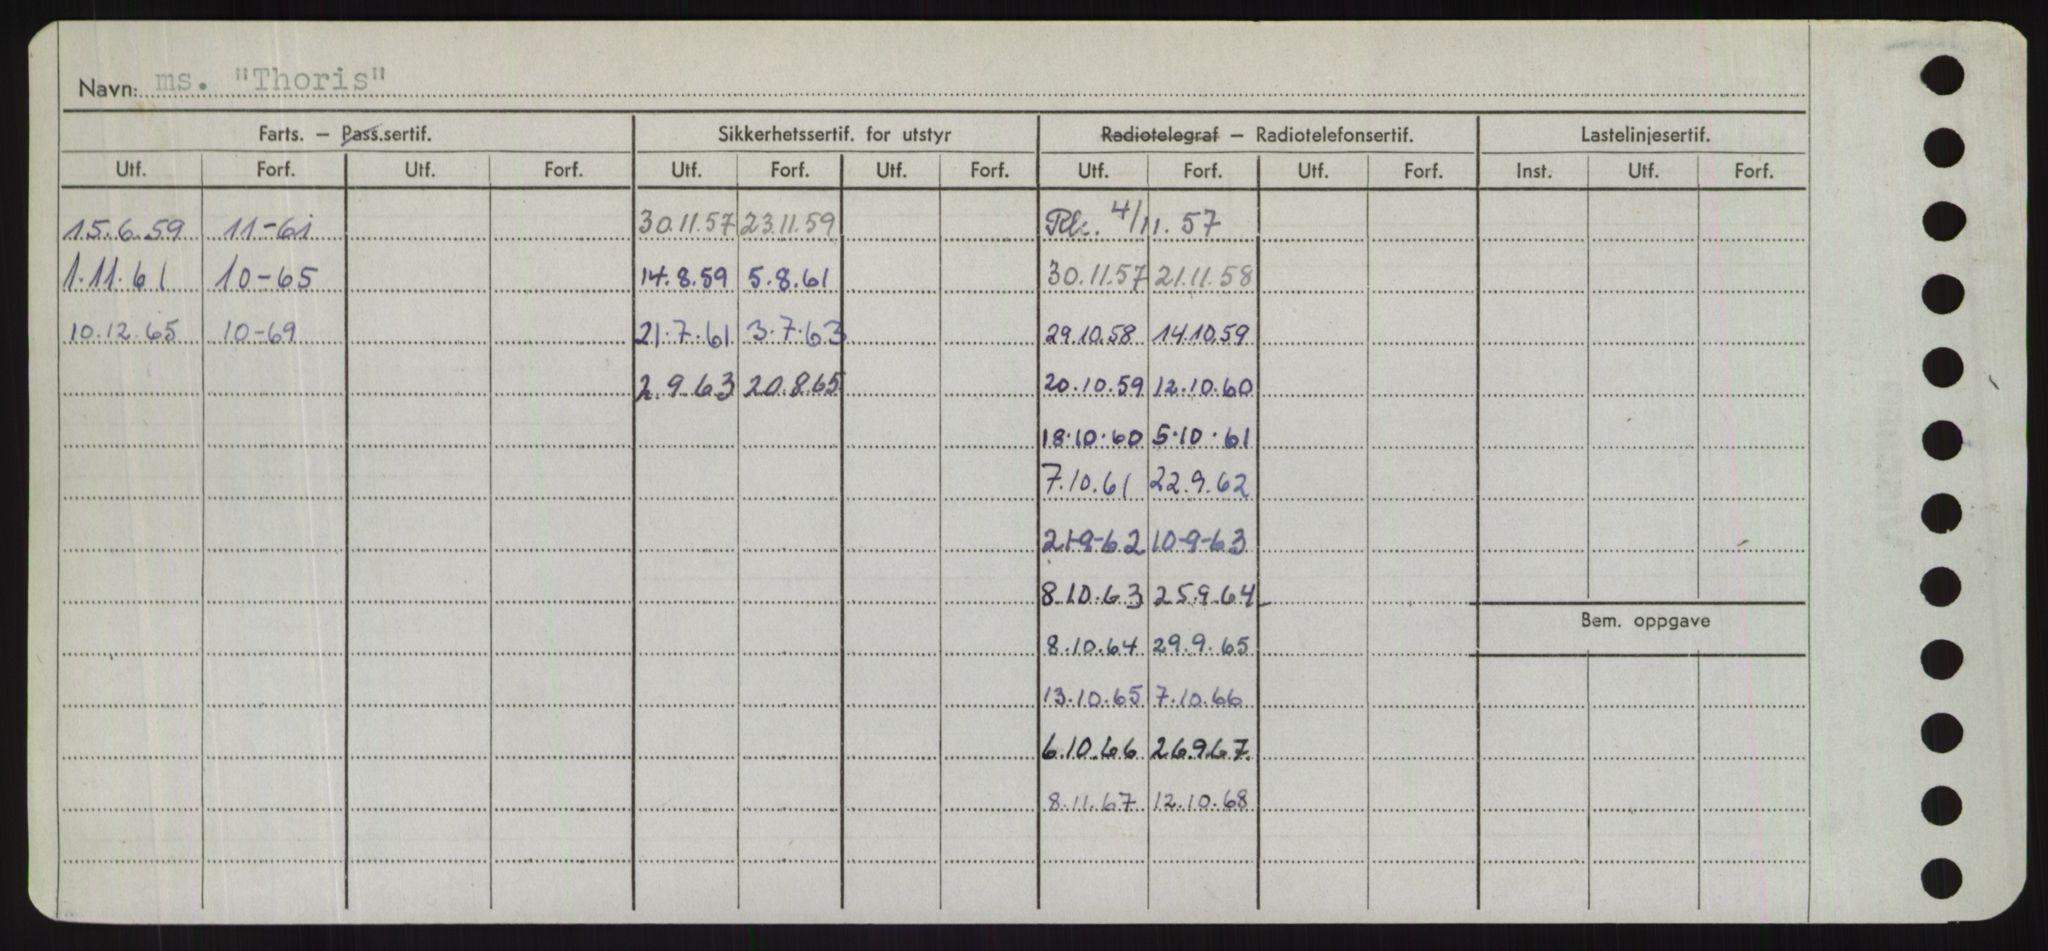 Navn: ms. "Thoris"
Farts. – Pass.sertif. Sikkerhetssertif. for utstyr Radiotelegraf – Radiotelefonsertif. Lastelinjesertif.
Utf. Forf. Utf. Forf. Utf. Forf. Utf. Forf. Utf. Forf. Utf. Forf. Inst. Utf. Forf.
15.6.59 11-61 30.11.57 23.11.59 4/11.57
1.11.61 10-65 14.8.59 5.8.61 30.11.57 21.11.58
10.12.65 10-69 21.7.61 3.7.63 29.10.58 14.10.59
2.9.63 20.8.65 20.10.59 12.10.60
18.10.60 5.10.61
7.10.61 22.9.62
21-9-62 10-9-63
8.10.63 25.9.64
Bem. oppgave
8.10.64 29.9.65
13.10.65 7.10.66
6.10.66 26.9.67.
8.11.67 12.10.68